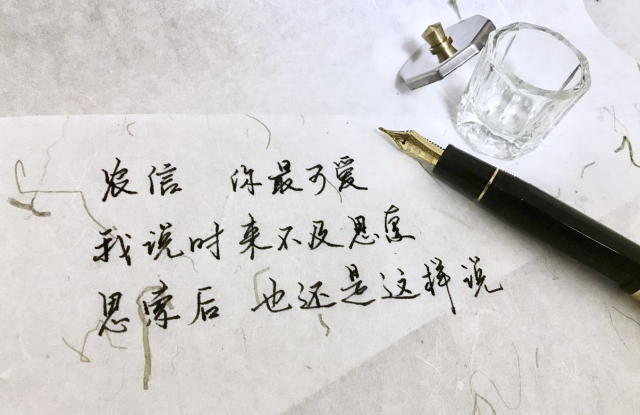 农信 你最可爱
我说时来不及思索
思索后 也还是这样说